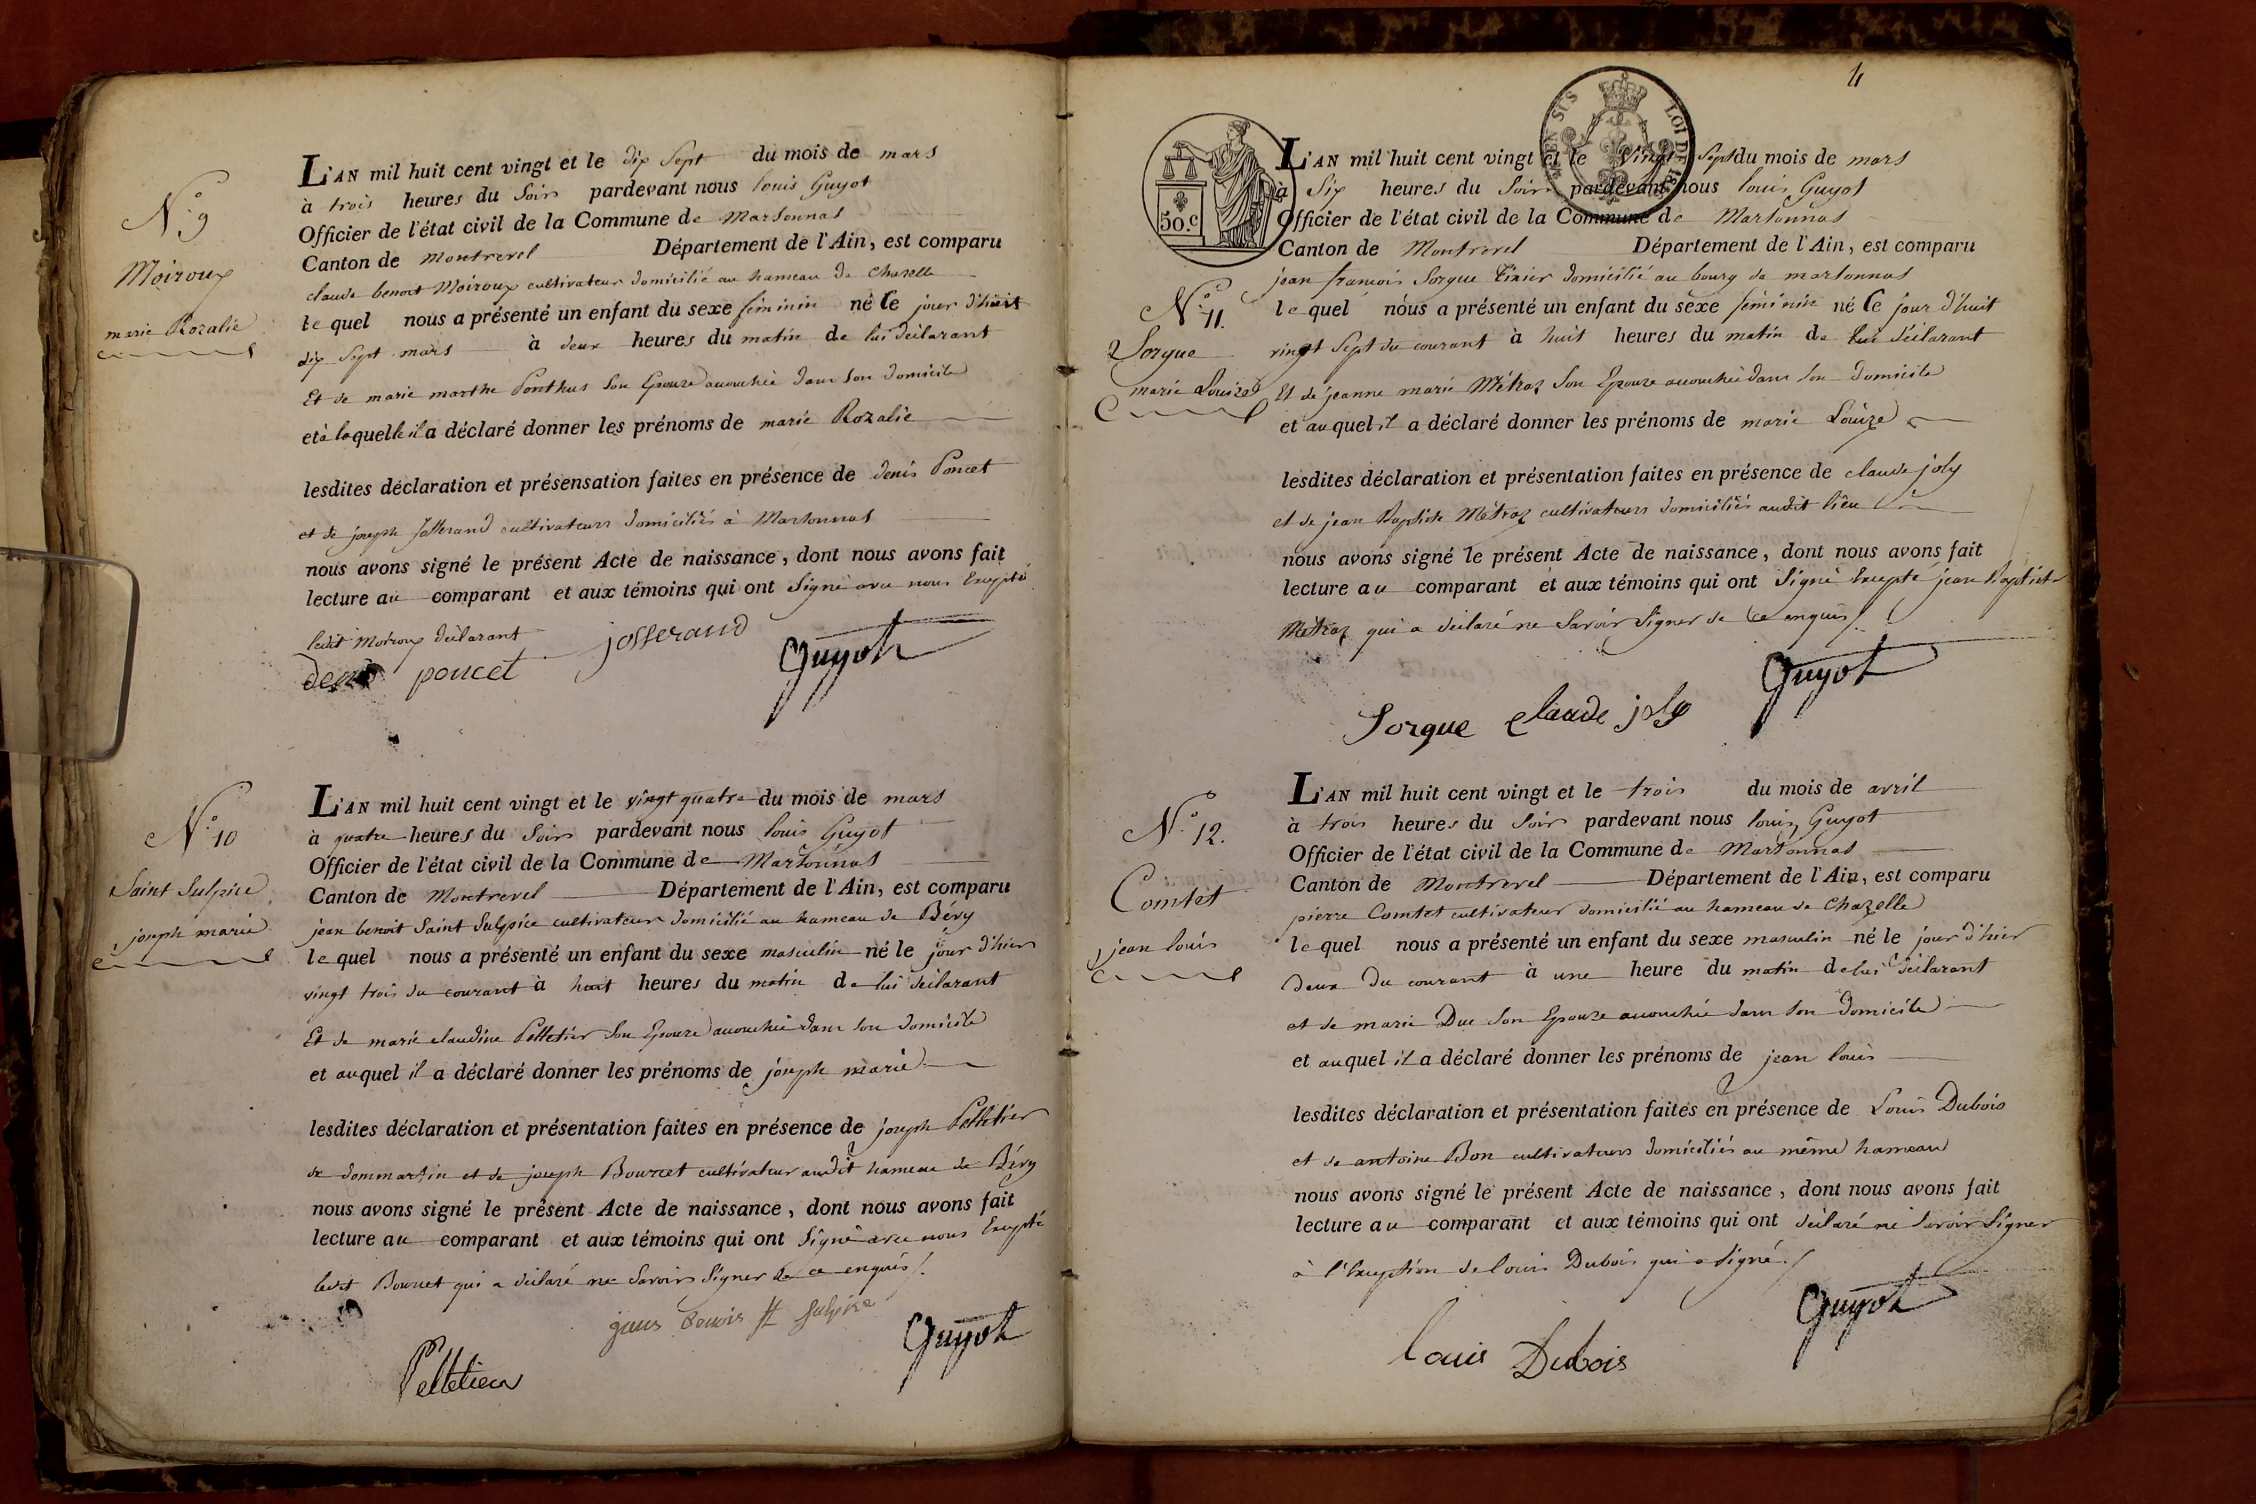 N.o 9
Moiroux
marie Rozalie
L'AN mil huit cent vingt et le dix Sept du mois de mars
à trois heures du Soir pardevant nous louis Guyot
Officier de l'état civil de la Commune de Marsonnas
Canton de Montrevel Département de l'Ain, est comparu
claude benoit Moiroux cultivateur domicilié au hameau de Chazelle
le quel nous a présenté un enfant du sexe féminin né le jour d'huit
dix Sept mars à deux heures du matin de lui déclarant
Et de marie marthe Ponthus Son Epouze accouchée dans Son domicile
et à laquelle il a déclaré donner les prénoms de marie Rozalie
lesdites déclaration et présensation faites en présence de denis Poncet
et de joseph Josserand cultivateurs domiciliés à Marsonnas
nous avons signé le présent Acte de naissance, dont nous avons fait
lecture au comparant et aux témoins qui ont Signé avec nous Excepté
ledit Moiroux déclarant
denis poncet josserand Guyot
N.o 10
Saint Sulpice
joseph marie
L'AN mil huit cent vingt et le vingt quatre du mois de mars
à quatre heures du Soir pardevant nous louis Guyot
Officier de l'état civil de la Commune de Marsonnas
Canton de Montrevel Département de l'Ain, est comparu
jean benoit Saint Sulpice cultivateur domicilié au hameau de Bévy
le quel nous a présenté un enfant du sexe masculin né le jour d'hier
vingt trois du courant à huit heures du matin de lui déclarant
Et de marie claudine Pelletier Son Epouze accouchée dans Son domicile
et auquel il a déclaré donner les prénoms de joseph marie
lesdites déclaration et présentation faites en présence de joseph Pelletier
de dommartin et de joseph Bourcet cultivateur audit hameau de Bévy
nous avons signé le présent Acte de naissance, dont nous avons fait
lecture au comparant et aux témoins qui ont Signé avec nous Excepté
ledit Bourcet qui a déclaré ne Savoir Signer de ce enquis /.
Pelletier St Sulpice Guyot
4
EN SUS LOI DE
50.c
N.o 11.
Sorgue
marie Louize
L'AN mil huit cent vingt et le vingt Sept du mois de mars
à Six heures du Soir pardevant nous louis Guyot
Officier de l'état civil de la Commune de Marsonnas
Canton de Montrevel Département de l'Ain, est comparu
jean francois Sorgue domicilié au bourg de marsonnas
le quel nous a présenté un enfant du sexe féminin né le jour d'huit
vingt Sept du courant à huit heures du matin de lui déclarant
Et de jeanne marie Métraz Son Epouze accouchée dans Son domicile
et auquel il a déclaré donner les prénoms de marie Louize
lesdites déclaration et présentation faites en présence de claude joly
et de jean Baptiste Métraz cultivateurs domiciliés audit lieu
nous avons signé le présent Acte de naissance, dont nous avons fait
lecture au comparant et aux témoins qui ont Signé Excepté jean Baptiste
Métraz qui a déclaré ne Savoir Signer de ce enquis /.
Sorgue claude joly Guyot
N.o 12.
Comtet
jean louis
L'AN mil huit cent vingt et le trois du mois de avril
à trois heures du Soir pardevant nous louis Guyot
Officier de l'état civil de la Commune de Marsonnas
Canton de Montrevel Département de l'Ain, est comparu
pierre Comtet cultivateur domicilié au hameau de Chazelle
le quel nous a présenté un enfant du sexe masculin né le jour d'hier
deux du courant à une heure du matin de lui déclarant
et de marie Duc Son Epouze accouchée dans Son domicile
et auquel il a déclaré donner les prénoms de jean louis
lesdites déclaration et présentation faites en présence de Louis Dubois
et de antoine Bon cultivateurs domiciliés au même hameau
nous avons signé le présent Acte de naissance, dont nous avons fait
lecture au comparant et aux témoins qui ont déclaré ne Savoir Signer
à l'Exception de louis Dubois qui a Signé. /
louis Dubois Guyot